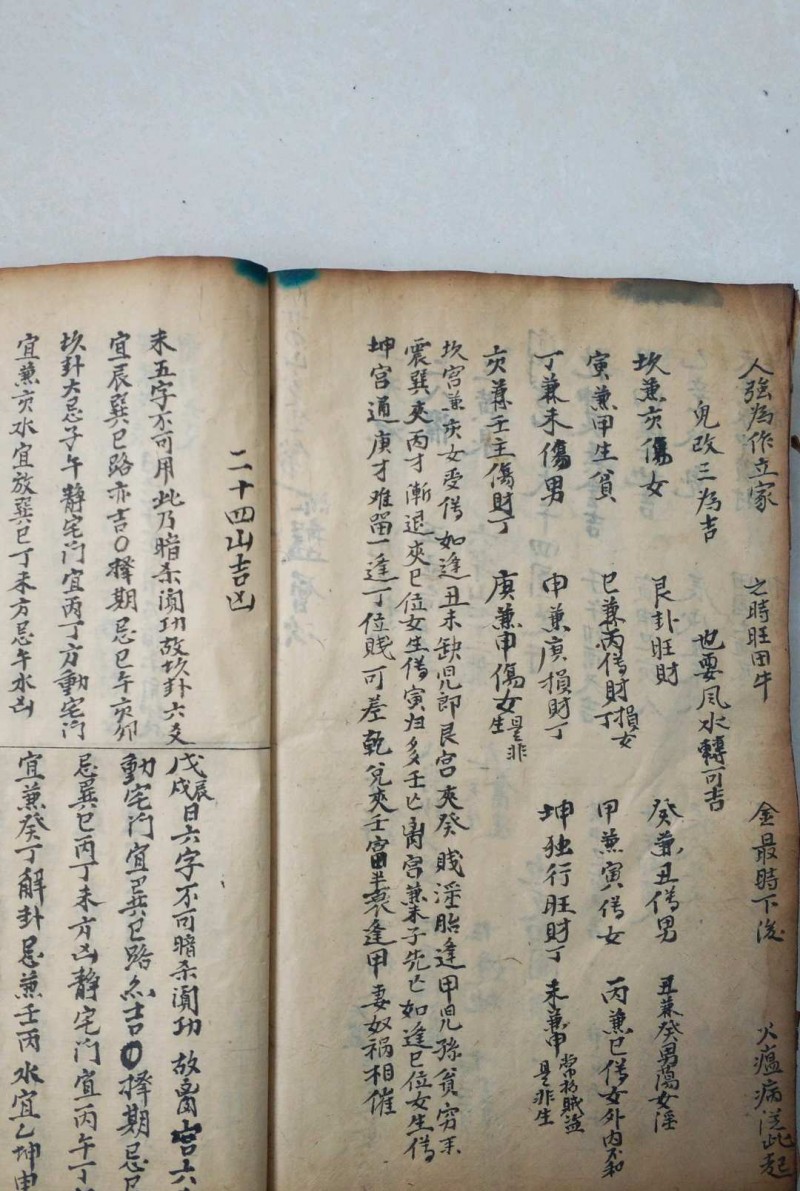 人強為作立家 之時旺田牛 金最時下後 火瘟病從此起
兒改三為吉 也要风水轉可吉
坎兼亥傷女 艮卦旺財 癸兼丑傷男 丑兼癸男蕩女淫
寅兼甲生貧 巳兼丙傷財損女丁 甲兼寅傷女 丙兼巳傷女外内不和
丁兼未傷男 申兼庚損財丁 坤独行旺財丁 未兼申常招賊盜是非生
亥兼壬主傷財丁 庚兼申傷女生是非
坎宫兼亥女受傷 如逢丑未缺兒郎 艮宫夾癸賤淫胎 逢甲兒孫貧穷來
震巽夾丙才漸退 夾巳位女生傷 寅归多壬亡 离宫兼未子先亡 如逢巳位女生傷
坤宫通庚才难留 一逢丁位賤可差 乾兌夾壬富半衰 逢甲妻奴祸相催
二十四山吉凶
未五字不可用此乃暗杀 故坎卦六爻
宜辰巽巳路亦吉〇擇期忌巳午亥卯
坎卦大忌子午靜宅门宜丙丁方動宅门
宜兼亥水宜放巽巳丁未方忌午水凶
戊辰戌日六字不可暗杀 故离宫六
動宅门宜巽巳路亦吉〇擇期忌巳
忌巽巳丙丁未方凶靜宅门宜丙午丁
宜兼癸丁解卦忌兼壬丙水宜乙坤申